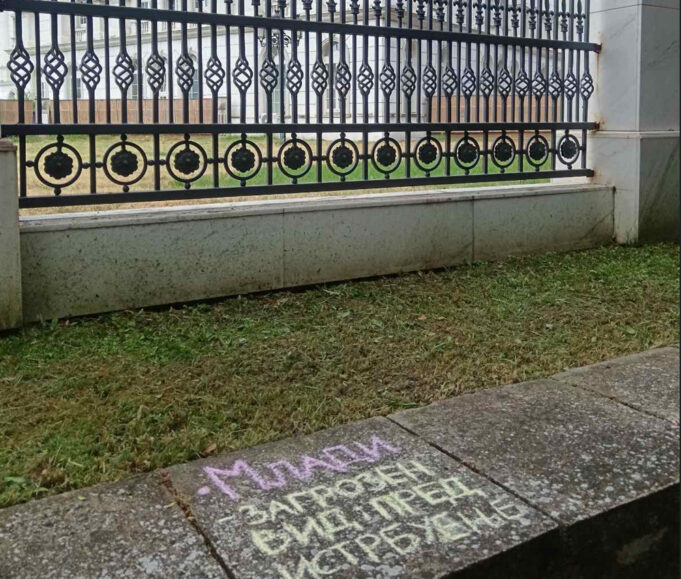 -Млади
-ЗАГРОЗЕН
ВИД, ПРЕД
ИСТРЕБУЕЊЕ